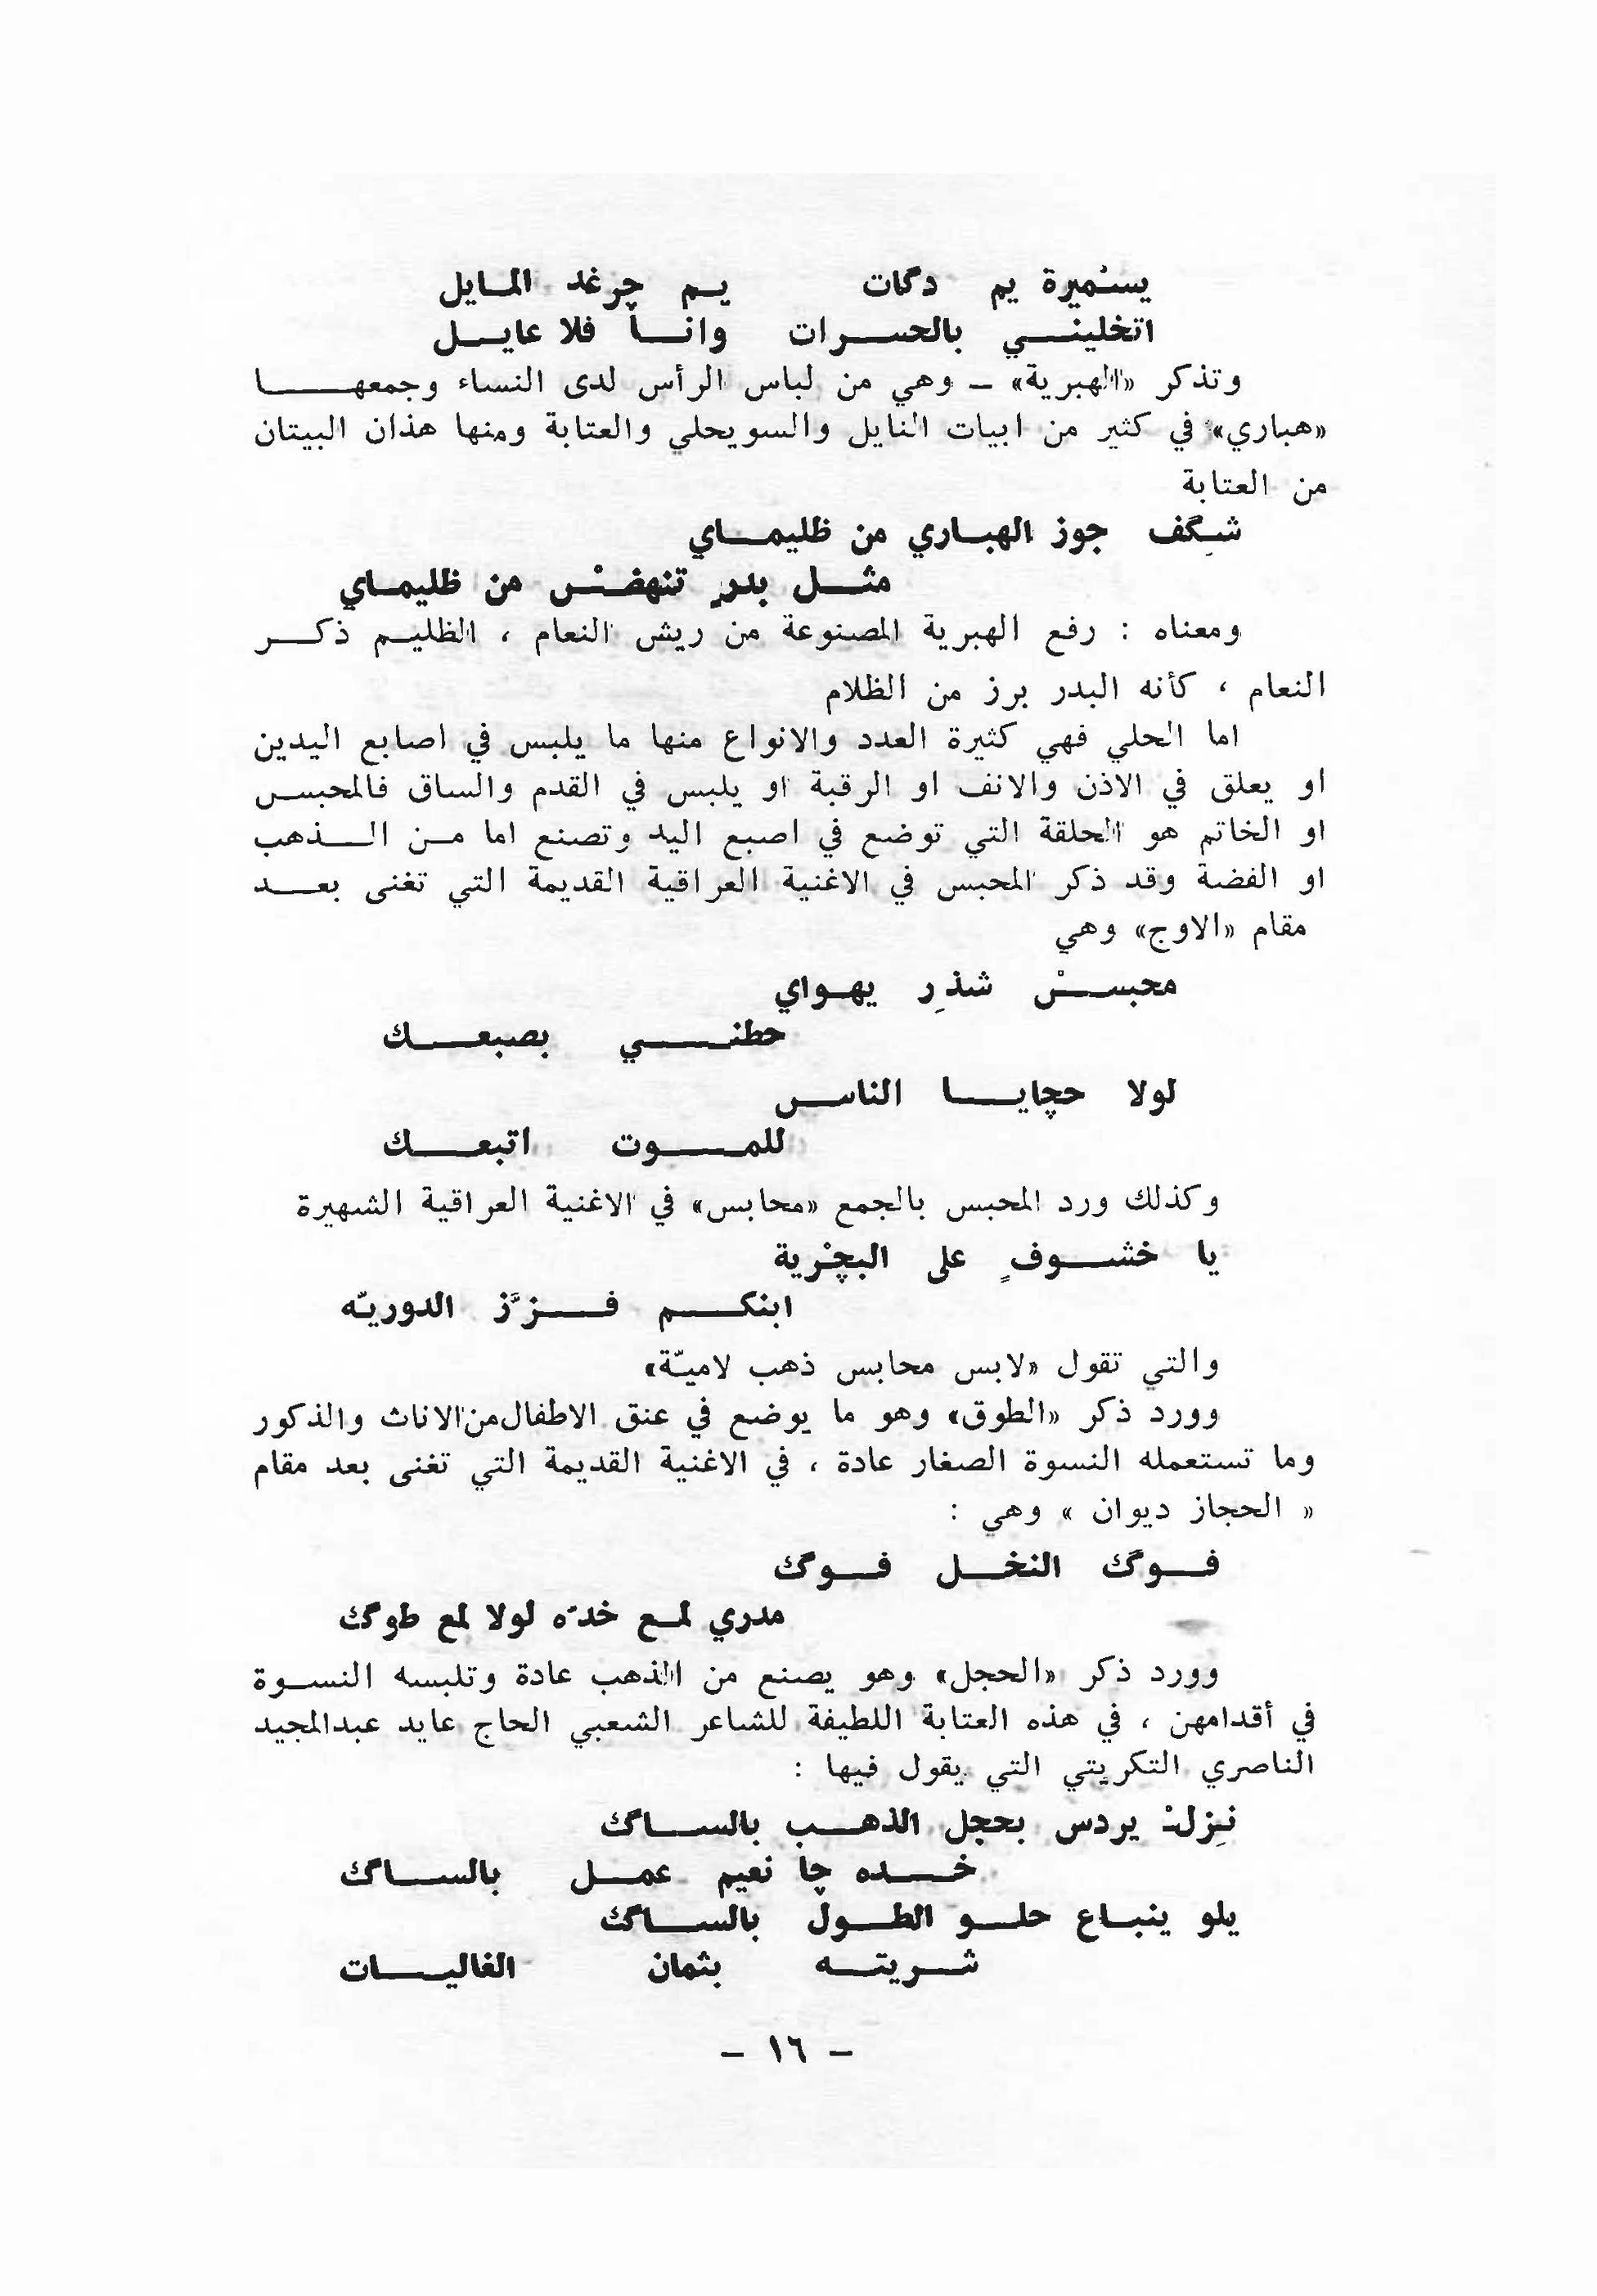 يسْميرة يم دگات يم چرغد المايل
اتخليني بالحسرات وانا فلا عايل
وتذكر «الهبرية» – وهي من لباس الرأس لدى النساء وجمعها
«هباري» في كثير من ابيات النايل والسويحلي والعتابة ومنها هذان البيتان
من العتابة
شِگف جوز الهباري من ظليماي
مثل بدرٍ تنهضْ من ظليماي
ومعناه : رفع الهبرية المصنوعة من ريش النعام ، الظليم ذكر
النعام ، كأنه البدر برز من الظلام
اما الحلي فهي كثيرة العدد والانواع منها ما يلبس في اصابع اليدين
او يعلق في الاذن والانف او الرقبة او يلبس في القدم والساق فالمحبس
او الخاتم هو الحلقة التي توضع في اصبع اليد وتصنع اما من الذهب
او الفضة وقد ذكر المحبس في الاغنية العراقية القديمة التي تغنى بعد
مقام «الاوج» وهي
محبسْ شذِر يهواي
حطني بصبعك
لولا حچايا الناس
للموت اتبعك
وكذلك ورد المحبس بالجمع «محابس» في الاغنية العراقية الشهيرة
يا خشوفٍ على البچْرية
ابنكم فزّز الدوريّه
والتي تقول «لابس محابس ذهب لاميّة»
وورد ذكر «الطوق» وهو ما يوضع في عنق الاطفال من الاناث والذكور
وما تستعمله النسوة الصغار عادة ، في الاغنية القديمة التي تغنى بعد مقام
« الحجاز ديوان » وهي :
فوگ النخل فوگ
مدري لمع خدّه لولا لمع طوگ
وورد ذكر «الحجل» وهو يصنع من الذهب عادة وتلبسه النسوة
في أقدامهن ، في هذه العتابة اللطيفة للشاعر الشعبي الحاج عايد عبدالمجيد
الناصري التكريتي التي يقول فيها :
نِزلْ يردس بحجل الذهب بالساگ
خده چا نعيم عمل بالساگ
يلو ينباع حلو الطول بالساگ
شريته بثمان الغاليات
– ١٦ –